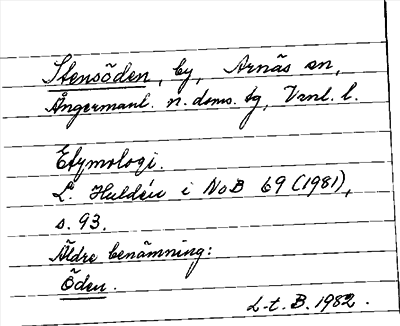 Stensöden, by, Arnäs sn,
Ångermanl. n. doms. tg, Vrnl. l.
Etymologi.
L. Huldén i NoB 69 (1981),
s. 93.
Äldre benämning:
Öden.
L-t. B. 1982.